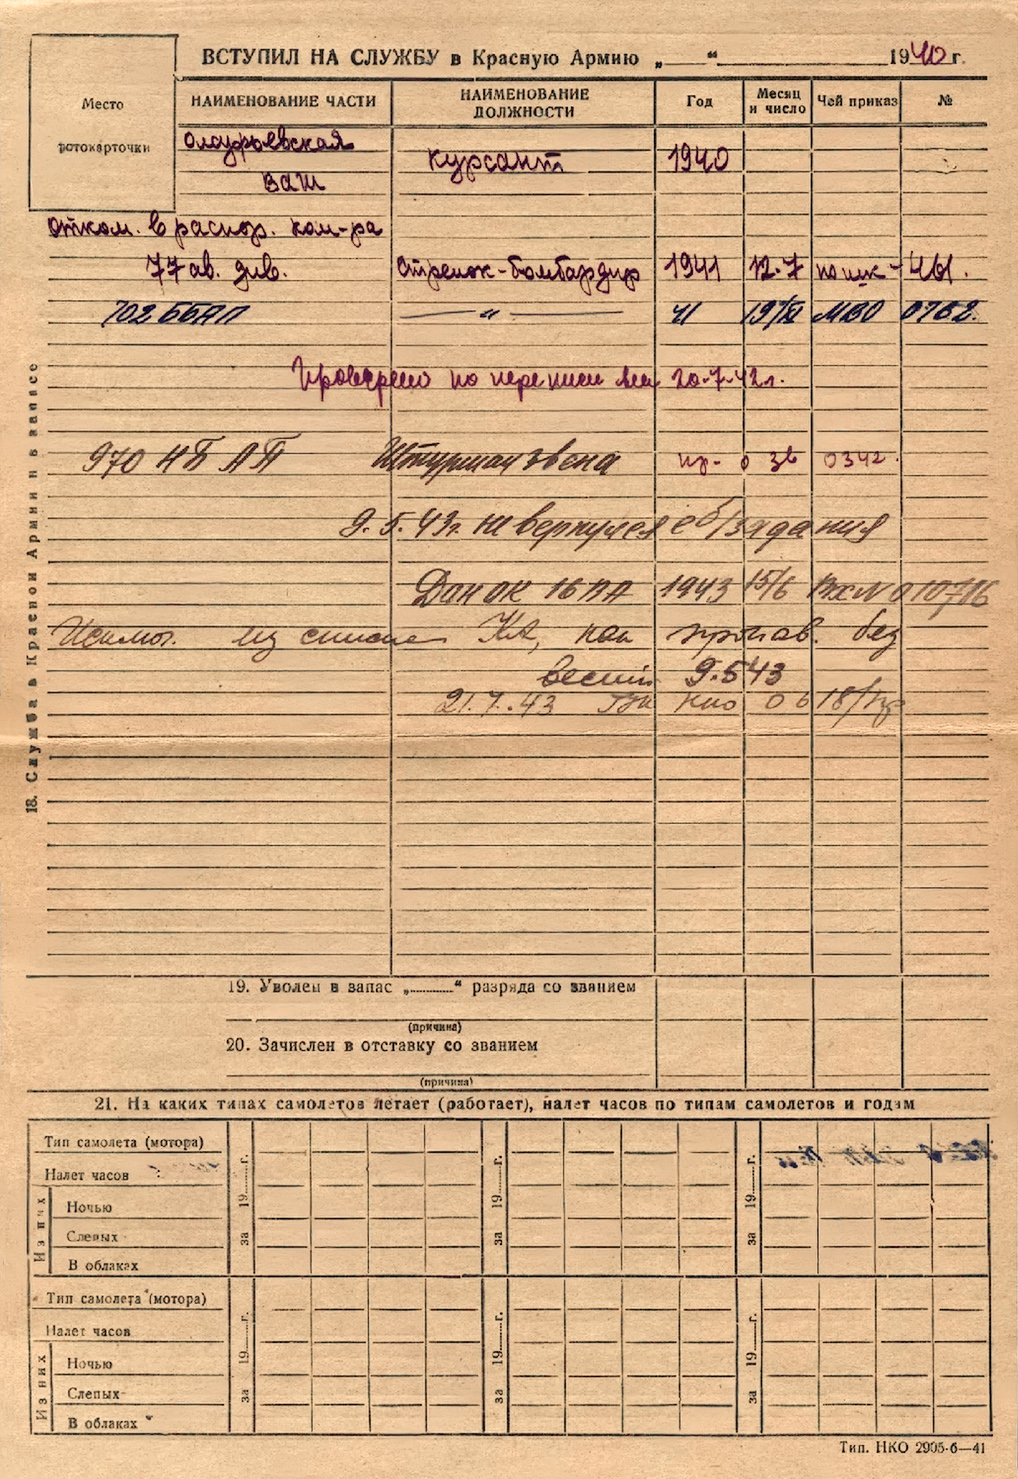 ВСТУПИЛ НА СЛУЖБУ в Красную Армию „___“ ___ 1940 г.
Место
фотокарточки
НАИМЕНОВАНИЕ ЧАСТИ
НАИМЕНОВАНИЕ ДОЛЖНОСТИ
Год
Месяц и число
Чей приказ
№
ВАШ курсант 1940
Отком. в распор. ком-ра
77 ав. див. Стрелок-бомбардир 1941 12-7 461.
702 ББАП — " — 41 19/XI МВО 0762.
Проверено по переписи 20-7-42г.
970 НБАП Штурман звена пр- 0342.
9.5.43г. не вернулся с б/задания
Дон ОК 16 ВА 1943 15/6 Вх№ 010716
из списков КА, как пропав. без
вести 9.5.43
21.7.43
18. Служба в Красной Армии и в запасе
19. Уволен в запас „___“ разряда со званием
(причина)
20. Зачислен в отставку со званием
(причина)
21. На каких типах самолетов летает (работает), налет часов по типам самолетов и годам
Тип самолета (мотора)
Налет часов
Из них
Ночью
Слепых
В облаках
за 19___г.
за 19___г.
за 19___г.
Тип самолета (мотора)
Налет часов
Из них
Ночью
Слепых
В облаках
за 19___г.
за 19___г.
за 19___г.
Тип. НКО 2905-б—41